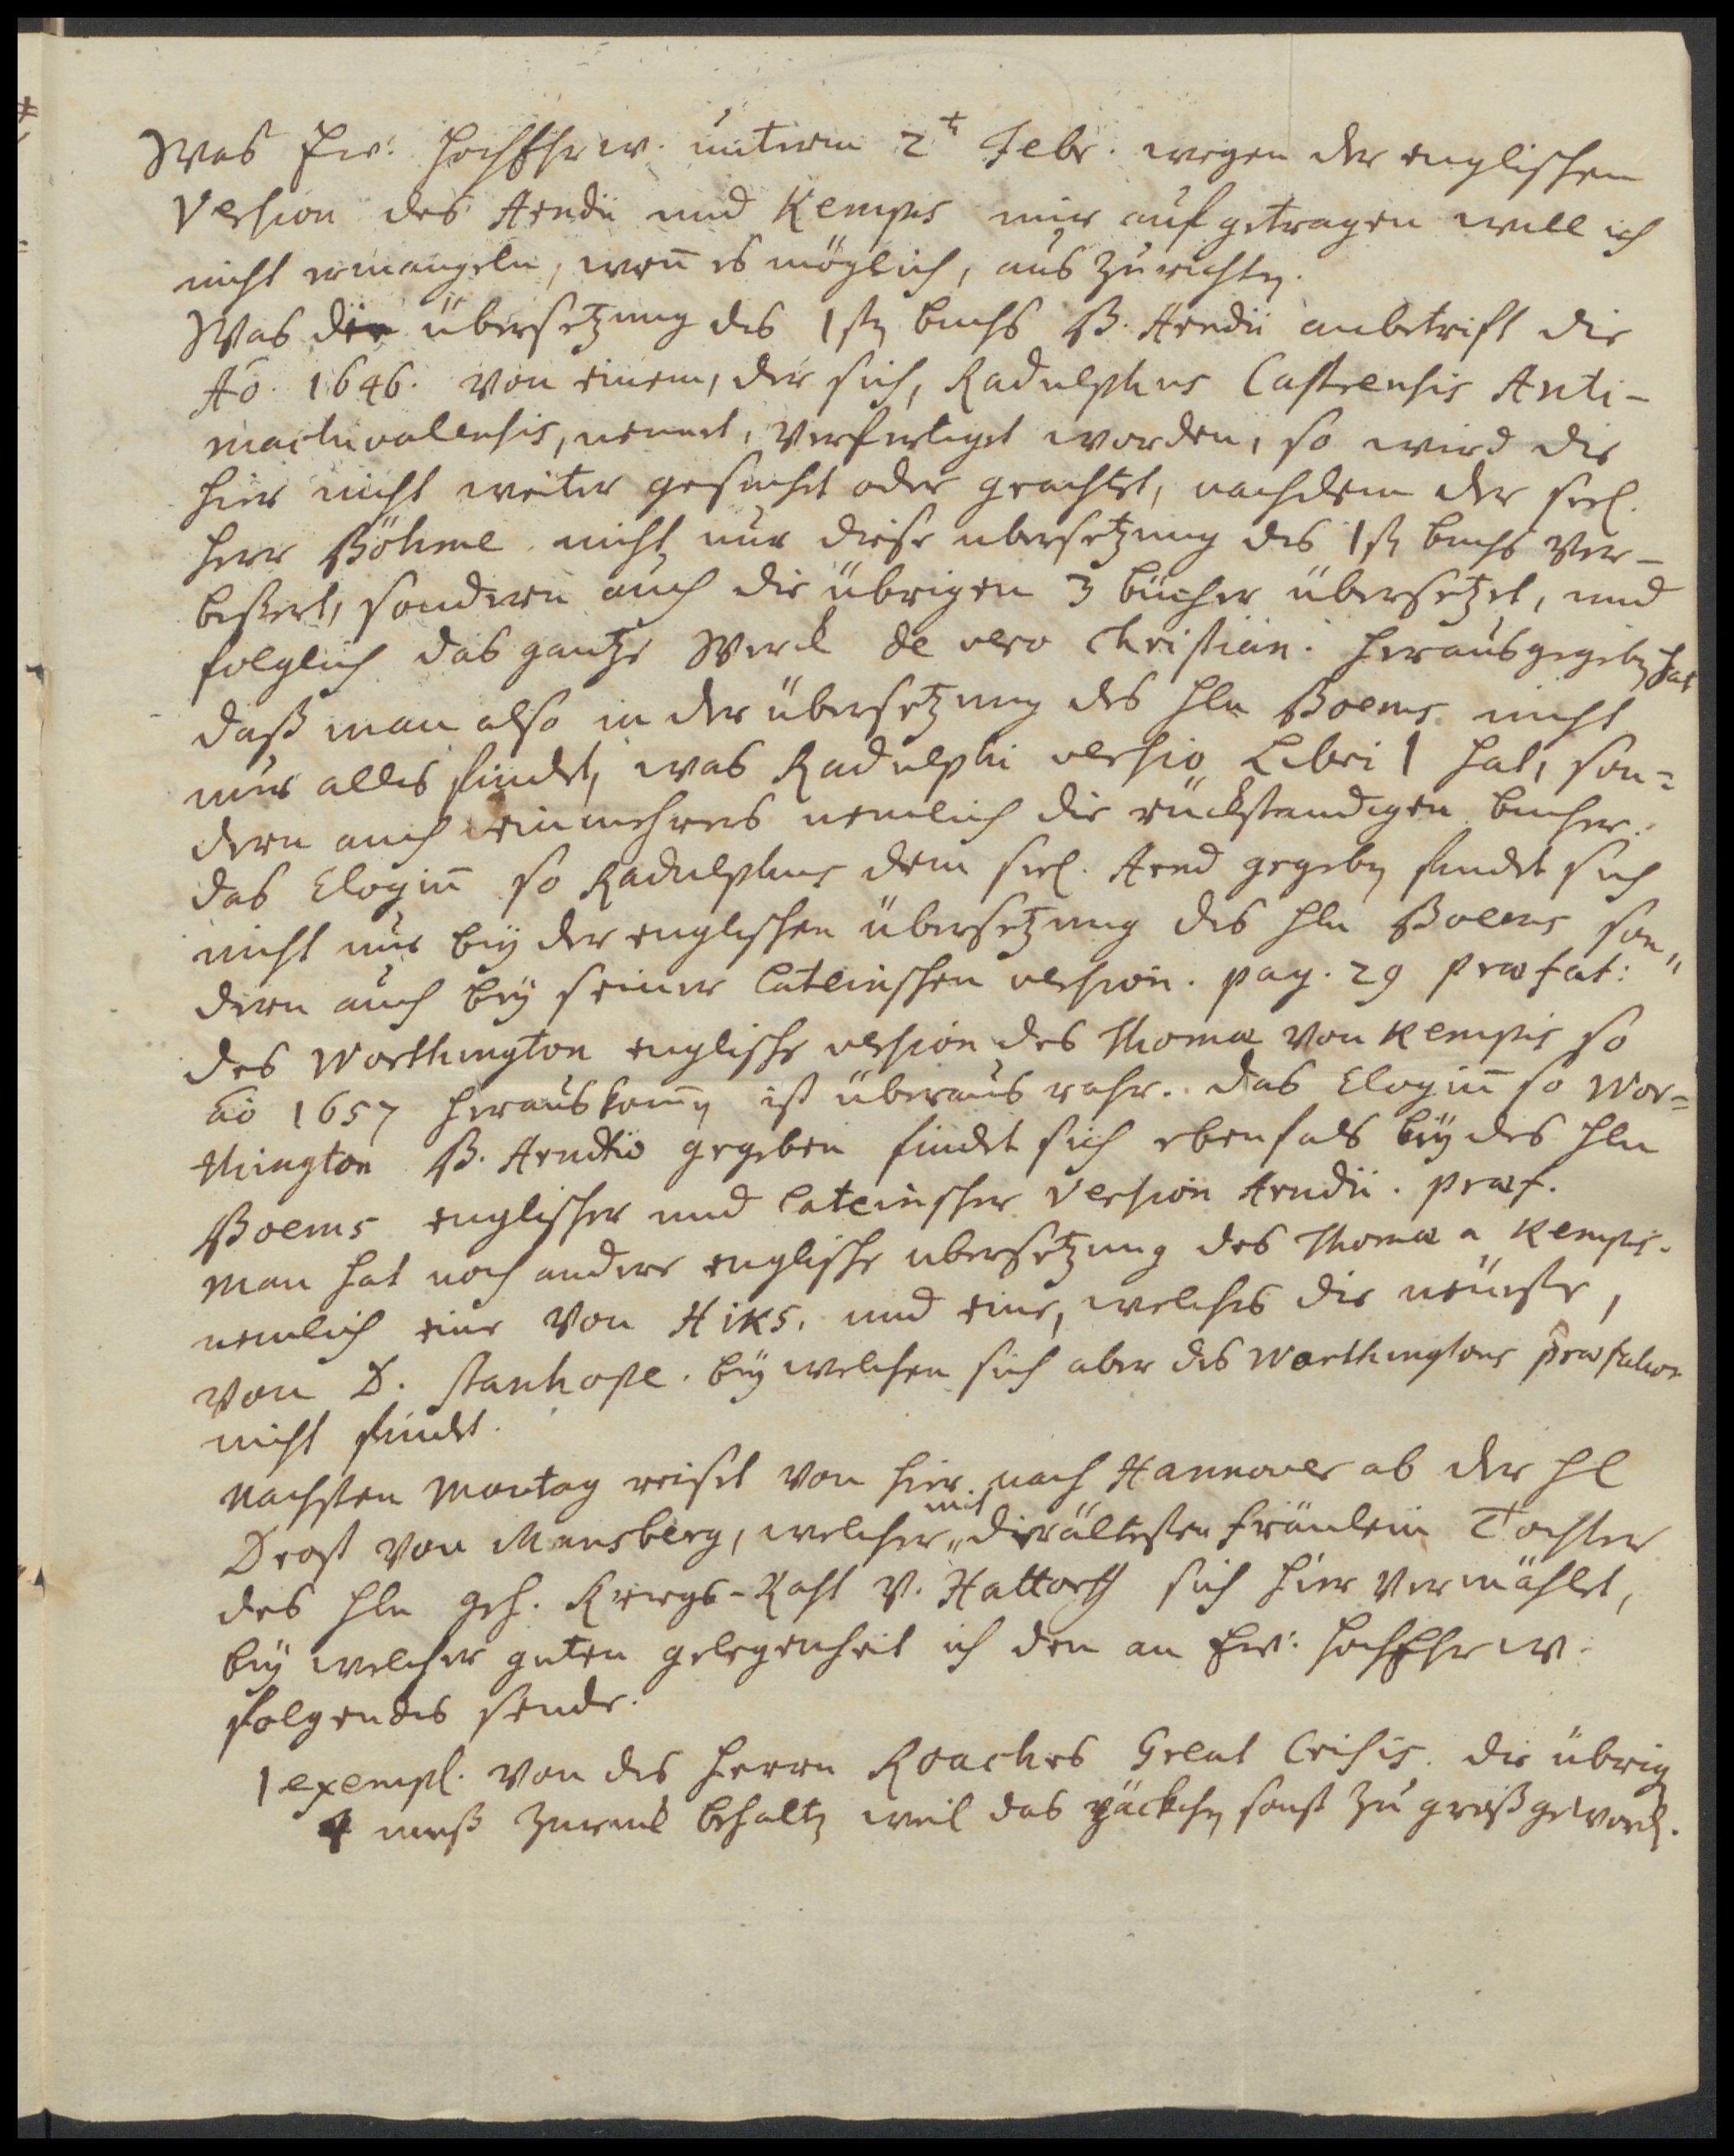 Was Ew. HochEhrw. unterm 2t Febr. wegen der englischen
Version des Arndii und Kempis mir aufgetragen will ich
nicht ermangeln, wen̄ es möglich, auszurichten.
Was die übersetzung des 1sten buchs B. Arndii anbetrift die
Ao. 1646. von einem, der sich, Radulphus Castrensis Anti-
machivalensis, nennet, verfertiget worden, so wird die
hier nicht weiter gesuchet oder geachtet, nachdem der seel.
Herr Böhme nicht nur diese ubersetzung des 1sten buchs ver-
beßert, sondern auch die übrigen 3 bücher übersetzet, und
folglich das gantze Werck de vero Christian. herausgegeben hat
daß man also in der übersetzung des Hln Boems nicht
nur alles findet, was Radulphi versio Libri 1 hat, son=
dern auch ein mehrers nemlich die rückstandigen bucher.
das Elogiū so Radulphus dem seel. Arnd gegeben findet sich
nicht nur bey der englischen übersetzung des Hln Boems son=
dern auch bey seiner Lateinschen version. pag. 29 præfat:
des Worthington englische version des Thomæ von Kempis so
aō 1657 herauskom̄en ist überaus rahr. das Elogiū so Wor=
thington B. Arndtio gegeben findet sich ebenfals bey des Hln
Boems englischer und Lateinscher Version Arndii. præf.
Man hat noch andere englische ubersetzung des Thomæ a Kempis.
nemlich eine von Hiks. und eine, welches die neueste,
von D. Stanhope. bey welchen sich aber des Worthingtons præfation
nicht findet.
Nachsten Montag reiset von hier nach Hannover ab der Hl
Drost von Mansberg, welcher mit der ältesten Fräulein Tochter
des Hln geh. Kriegs-Raht v. Hattorf sich hier vermählet,
bey welcher guten gelegenheit ich den an Ew. HochEhrw.
folgendes sende.
1 exempl. von des Herrn Roaches Great Crisis. die übrigen
4 muß zuruck behalten weil das päckchen sonst zu groß geworden.